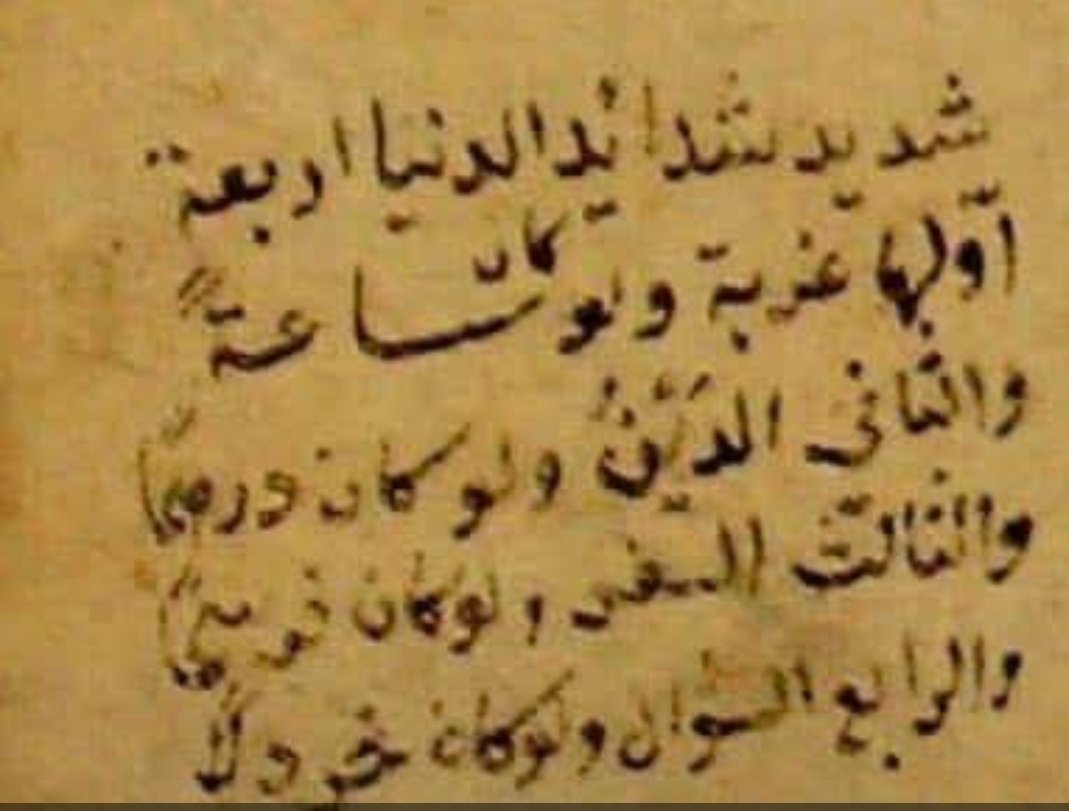 شديد شدائد الدنيا اربعة
اوّلها غربة ولو كان ساعةً
والثانى الدَيْنُ ولو كان درهماً
والثالث السفر ولو كان فرسخاً
والرابع السؤال ولو كان خردلاً